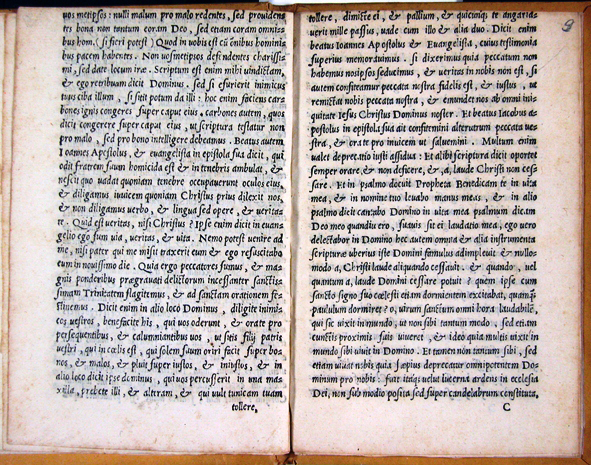 uosmetipsos: nulli malum pro malo redentes, sed prouidens
tes bona non tantum coram Deo, sed etiam coram omnis
bus hom. (si fieri potest) Quod in uobis est cũ õnibus hominis
bus pacem habentes. Non uosmetipsos defendentes charissi-
mi, sed date locum iræ. Scriptum est enim mihi uindictam,
& ego retribuam dicit Dominus. sed si esurierit inimicus
tuus ciba illum, si sitit potum da illi: hoc enim faciens car-
bones ignis congeres super caput eius, carbones autem, quos
dicit congerere super caput eius, ut scriptura testatur non
pro malo, sed pro bono intelligere debeamus. Beatus autem
Ioannes Apostolus, & euangelista in epistola sua dicit, qui
odit fratrem suum homicida est & in tenebris ambulat, &
nescit quo uadat quoniam tenebre occupauerunt oculos eius,
& diligamus inuicem quoniam Christus prius dilexit nos,
& non diligamus uerbo, & lingua sed opere, & uerita-
te. Quid est ueritas, nisi Christus? Ipse enim dicit in euan-
gelio ego sum uia, ueritas, & uita. Nemo potest uenire ad
me, nisi pater qui me misit traxerit eum & ego resuscitabo
eum in nouissimo die. Quia ergo peccatores sumus, & ma-
gnis ponderibus prægrauati delictorum incessanter sanctis-
simam Trinitatem flagitemus, & ad sanctam orationem fe-
stinemus. Dicit enim in alio loco Dominus, diligite inimi-
cos uestros, benefacite his, qui uos oderunt, & orate pro
persequentibus, & calumniantibus uos, ut sitis filij patris
uestri, qui in cœlis est, qui solem suum oriri facit super bo-
nos, & malos, & pluit super iustos, & iniustos, & in
alio loco dicit ipse dominus, qui uos percusserit in una ma-
xilla, prebete illi, & alteram, & qui uult tunicam tuam
tollere,
9
tollere, dimitte ei, & pallium, & quicunq; te angaria-
uerit mille passus, uade cum illo & alia duo. Dicit enim
beatus Ioannes Apostolus & Euangelista, cuius testimonia
superius memorauimus. Si dixerimus quia peccatum non
habemus nosipsos seducimus, & ueritas in nobis non est, si
autem confiteamur peccata nostra fidelis est, & iustus, ut
remittat nobis peccata nostra, & emundet nos ab omni ini-
quitate Iesus Christus Dominus noster. Et beatus Iacobus A-
postolus in epistola sua ait confitemini alterutrum peccata ues-
tra, & orate pro inuicem ut saluemini. Multum enim
ualet deprecatio iusti assidua: Et alibi scriptura dicit oportet
semper orare, & non deficere, &, a, laude Christi non ces-
sare. Et in psalmo docuit Propheta Benedicam te in uita
mea, & in nomine tuo leuabo manus meas, & in alio
psalmo dicit cantabo Domino in uita mea psalmum dicam
Deo meo quandiu ero, suauis sit ei laudatio mea, ego uero
delectabor in Domino hec autem omnia & alia instrumenta
scripturæ uberius iste Domini famulus adimpleuit & nullo-
modo a, Christi laude aliquando cessauit. & quando, uel
quantum a, laude Domini cessare potuit? quem ipse cum
sancto signo suo cœlesti etiam dormientem excitabat, quamq;
paulum dormiret? o, uirum sanctum omni hora laudabilē,
qui sic uixit in mundo, ut non sibi tantum modo, sed etiam
cunctis proximis suis uiueret, & ideo quia multis uixit in
mundo sibi uiuit in Domino. Et tamen non tantum sibi, sed
etiam uiuat nobis quia sæpius deprecatur omnipotentem Do-
minum pro nobis: fuit itaq; uelut lucerna ardens in ecclesia
Dei, non sub modio posita sed super candelabrum constituta,
C